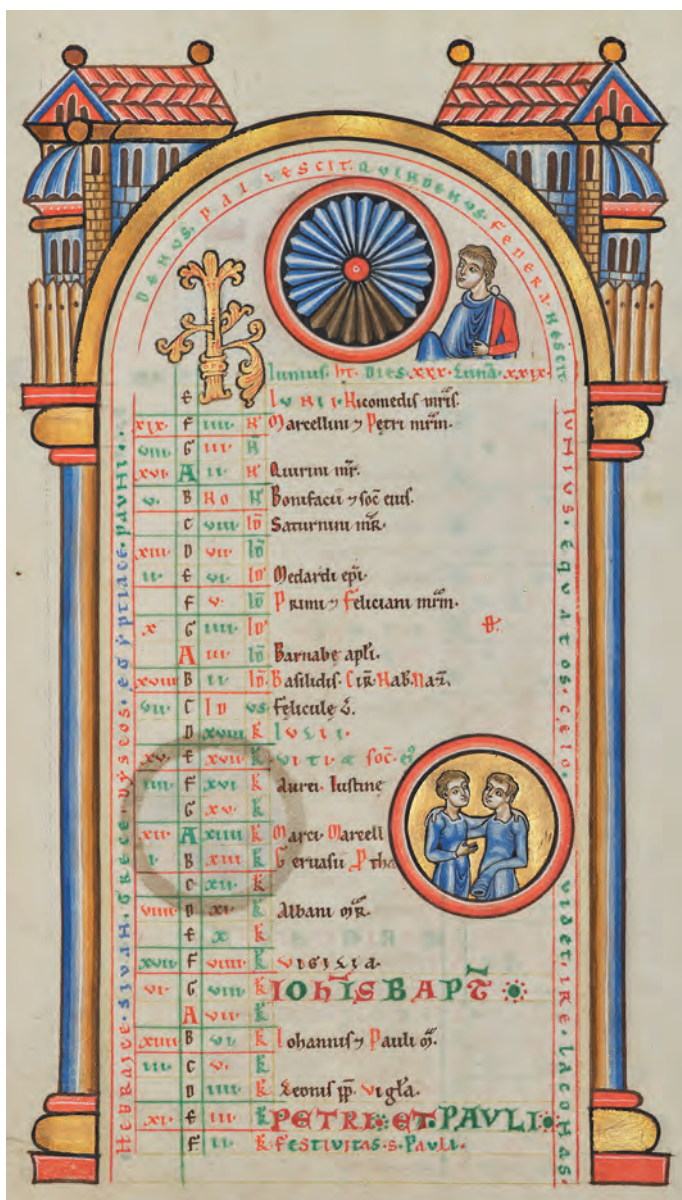 DENUS. PALLESCIT. QUINDENUS. FEDERA NESCIT
HEBRAJCE. SIVAN. GRECE. EGYPTIACE. PAUNI
IUNIUS. EQUATOS. CELO. VIDET. IRE. LACONAS.
Iunius. ht. dies. xxx. Luna. xxix.
E IUNII. Nicomedis mris.
xix. F iiii. N Marcellini ⁊ Petri mrm.
viii. G iii. N
xvi. A ii. N Quirini mr.
v. B NO N Bonifacii ⁊ soc eius.
C viii. ID Saturnini mR.
xiii. D vii. ID
ii. E vi. ID Medardi epi.
F v. ID Primi ⁊ Feliciani mrm.
x G iiii. ID
A iii. ID Barnabe apli.
xviii B ii. ID Basilidis. CiR. Nab. Naz.
vii. C ID VS Felicule v.
D xviii K IULII.
xv. E xvii. K VITI soc.
iiii. F xvi K Aurei. Iustine
G xv. K
xii. A xiiii K Marci. Marcell
i. B xiii K Geruasii Ptha
C xii. K
viiii. D xi. K Albani mR.
E x K
xvii. F viiii. K VIGILIA.
vi. G viii K IOHIS BAPT
A vii. K
xiiii. B vi. K Iohannis ⁊ Pauli m.
iii. C v. K
D iiii K Leonis pp. Vigla.
xi. E iii. K PETRI. ET. PAVLI.
F. ii. K FESTIVITAS. S. PAVLI.